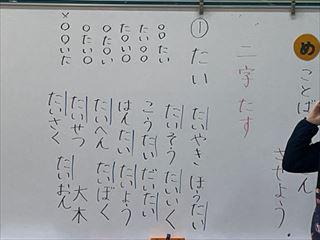 め
ことば
ん
させよう
二字たす
① たい
○○たい
たい○○
た○○い
○たい○
○た○い
×○○いた
たいやき ほうたい
たいそう たいいく
こうたい だいたい
はんたい たいよう
たいへん たいぼく
たいせつ 大木
たいさく たいおん